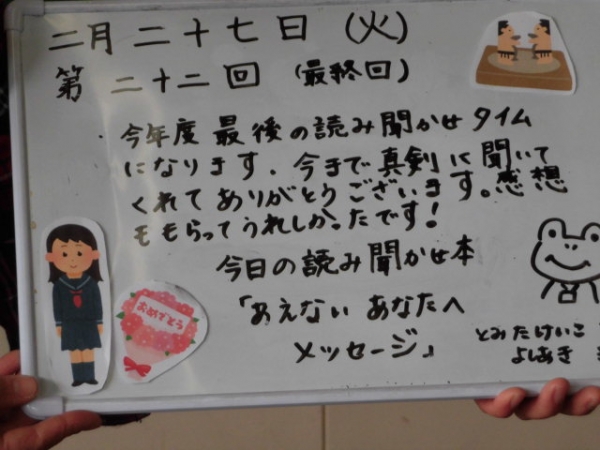 二月二十七日(火)
第二十二回(最終回)
今年度最後の読み聞かせタイム
になります。今まで真剣に聞いて
くれてありがとうございます。感想
ももらってうれしかったです!
今日の読み聞かせ本
「あえないあなたへ
メッセージ」
とみたけいこ
よしあき
おめでとう